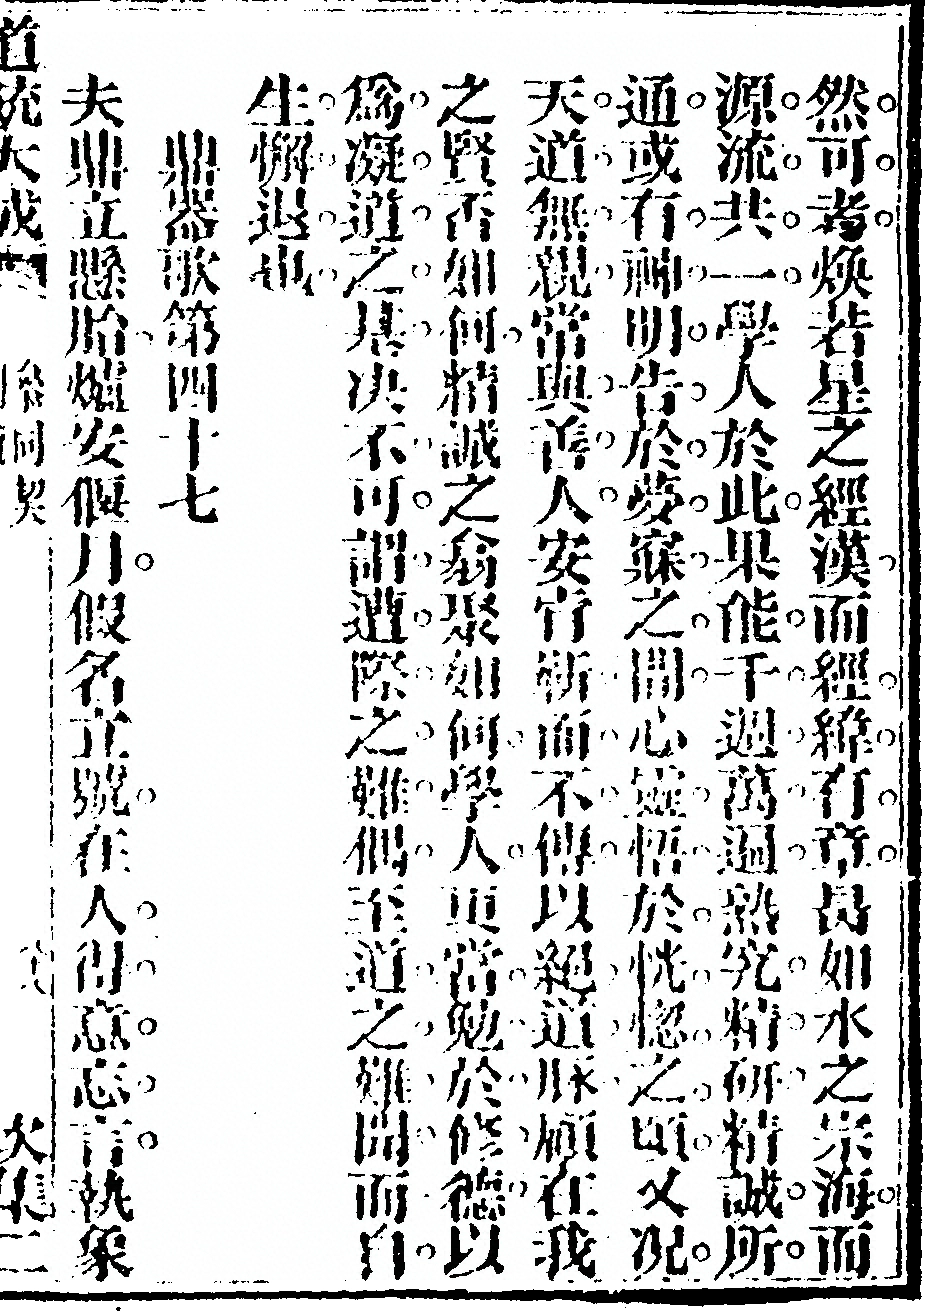 然可考煥若星之經漢而經緯有章昺如水之宗海而
源流共一學人於此果能千週萬遍熟究精研精誠所
通或有神明告於夢寐之間心靈悟於恍惚之頃又況
天道無親常與善人安肯靳而不傳以絕道脉顧在我
之賢否如何精誠之翕聚如何學人更當勉於修德以
爲凝道之基决不可謂遭際之難偶至道之難聞而自
生懈退也
鼎器歌第四十七
夫鼎立懸胎爐安偃月假名立號在人得意忘言執象
道統大成 參同契 火集二